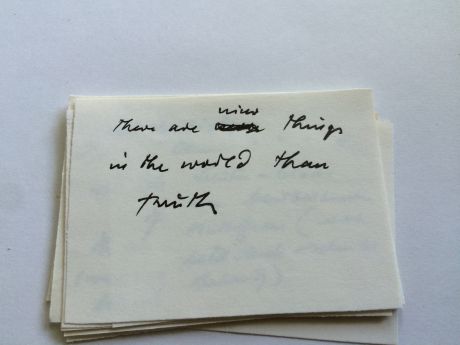 there are nicer things
in the world than
truth